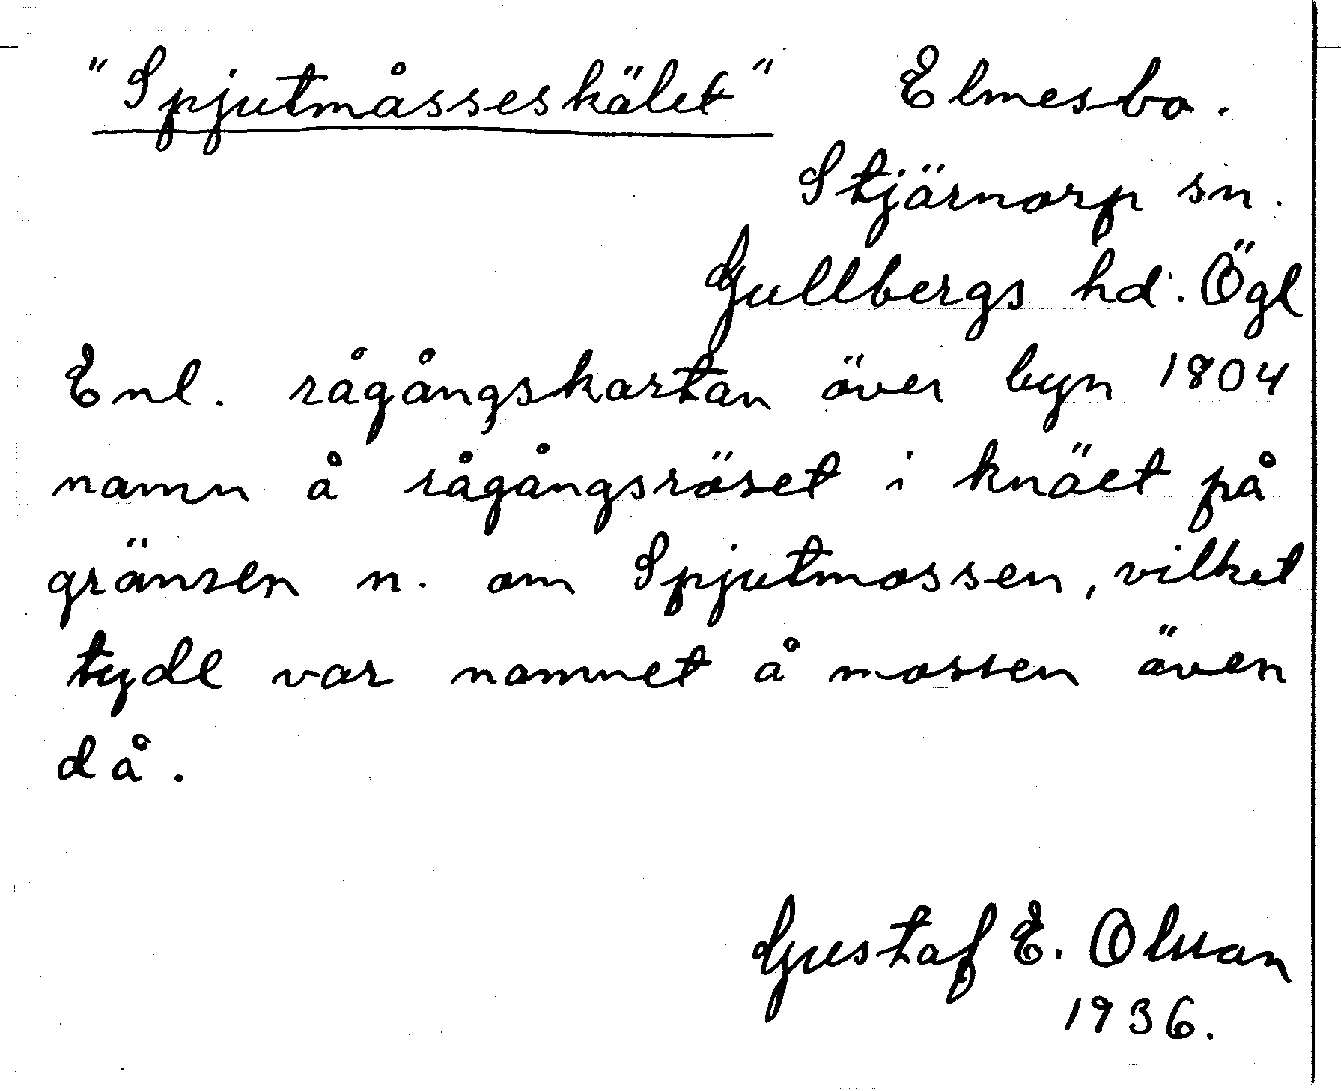 "Spjutmåsseskälet" Elmesbo.
Stjärnorp sn.
Gullbergs hd. Ögl
Enl. rågångskartan över byn 1804
namn å rågångsröset i knäet på
gränsen n. om Spjutmossen, vilket
tydl var namnet å mossen även
då.
Gustaf E. Olsson
1936.